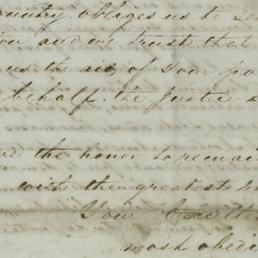 ountry obliges us to se
and we trust that
us the aid of your po
behalf. the Justice
the honor to remai
with the greatest
Your Excell
most obedi